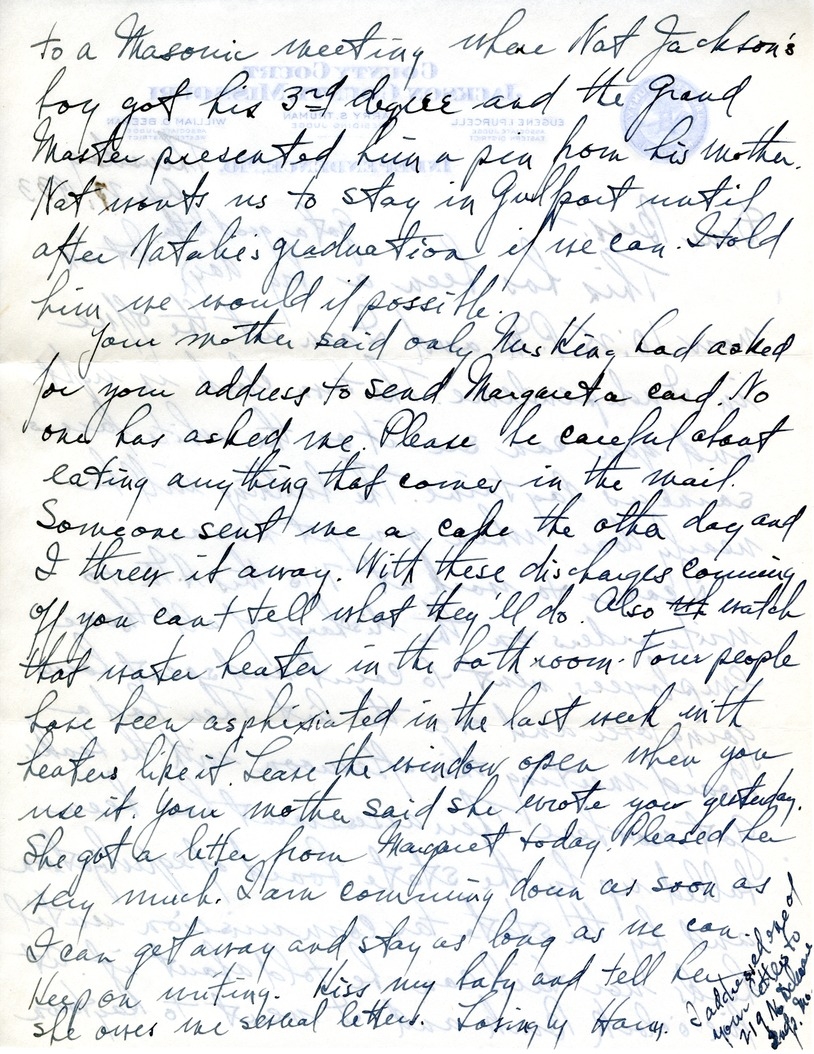 to a Masonic meeting where Nat Jackson's
boy got his 3rd degree and the Grand
Master presented him a pin from his mother.
Nat wants us to stay in Gulfport until
after Natalie's graduation if we can. I told
him we would if possible.
Your mother said only Mrs King had asked
for your address to send Margaret a card. No
one has asked me. Please be careful about
eating anything that comes in the mail.
Someone sent me a cake the other day and
I threw it away. With these discharges comming
off you can't tell what they'll do. Also watch
that water heater in the bathroom. Four people
have been asphixiated in the last week with
heaters like it. Leave the window open when you
use it. Your mother said she wrote you yesterday.
She got a letter from Margaret today. Pleased her
very much. I am comming down as soon as
I can get away and stay as long as we can.
Keep on writing. Kiss my baby and tell her
she owes me several letters. Lovingly Harry.
I addressed one of
your letters to
219 N. Delaware
Indp. Mo.